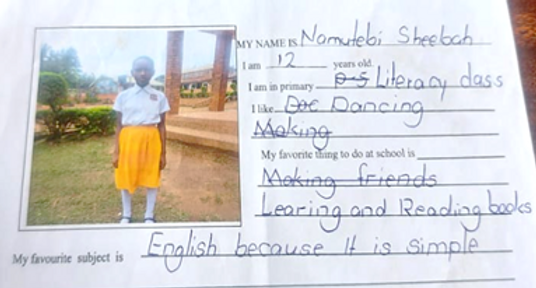 MY NAME IS Namutebi Sheebah
I am 12 years old.
I am in primary P-5 Literacy class
I like Doc Dancing
Making
My favorite thing to do at school is
Making friends
Learing and Reading books
My favourite subject is English because It is simple